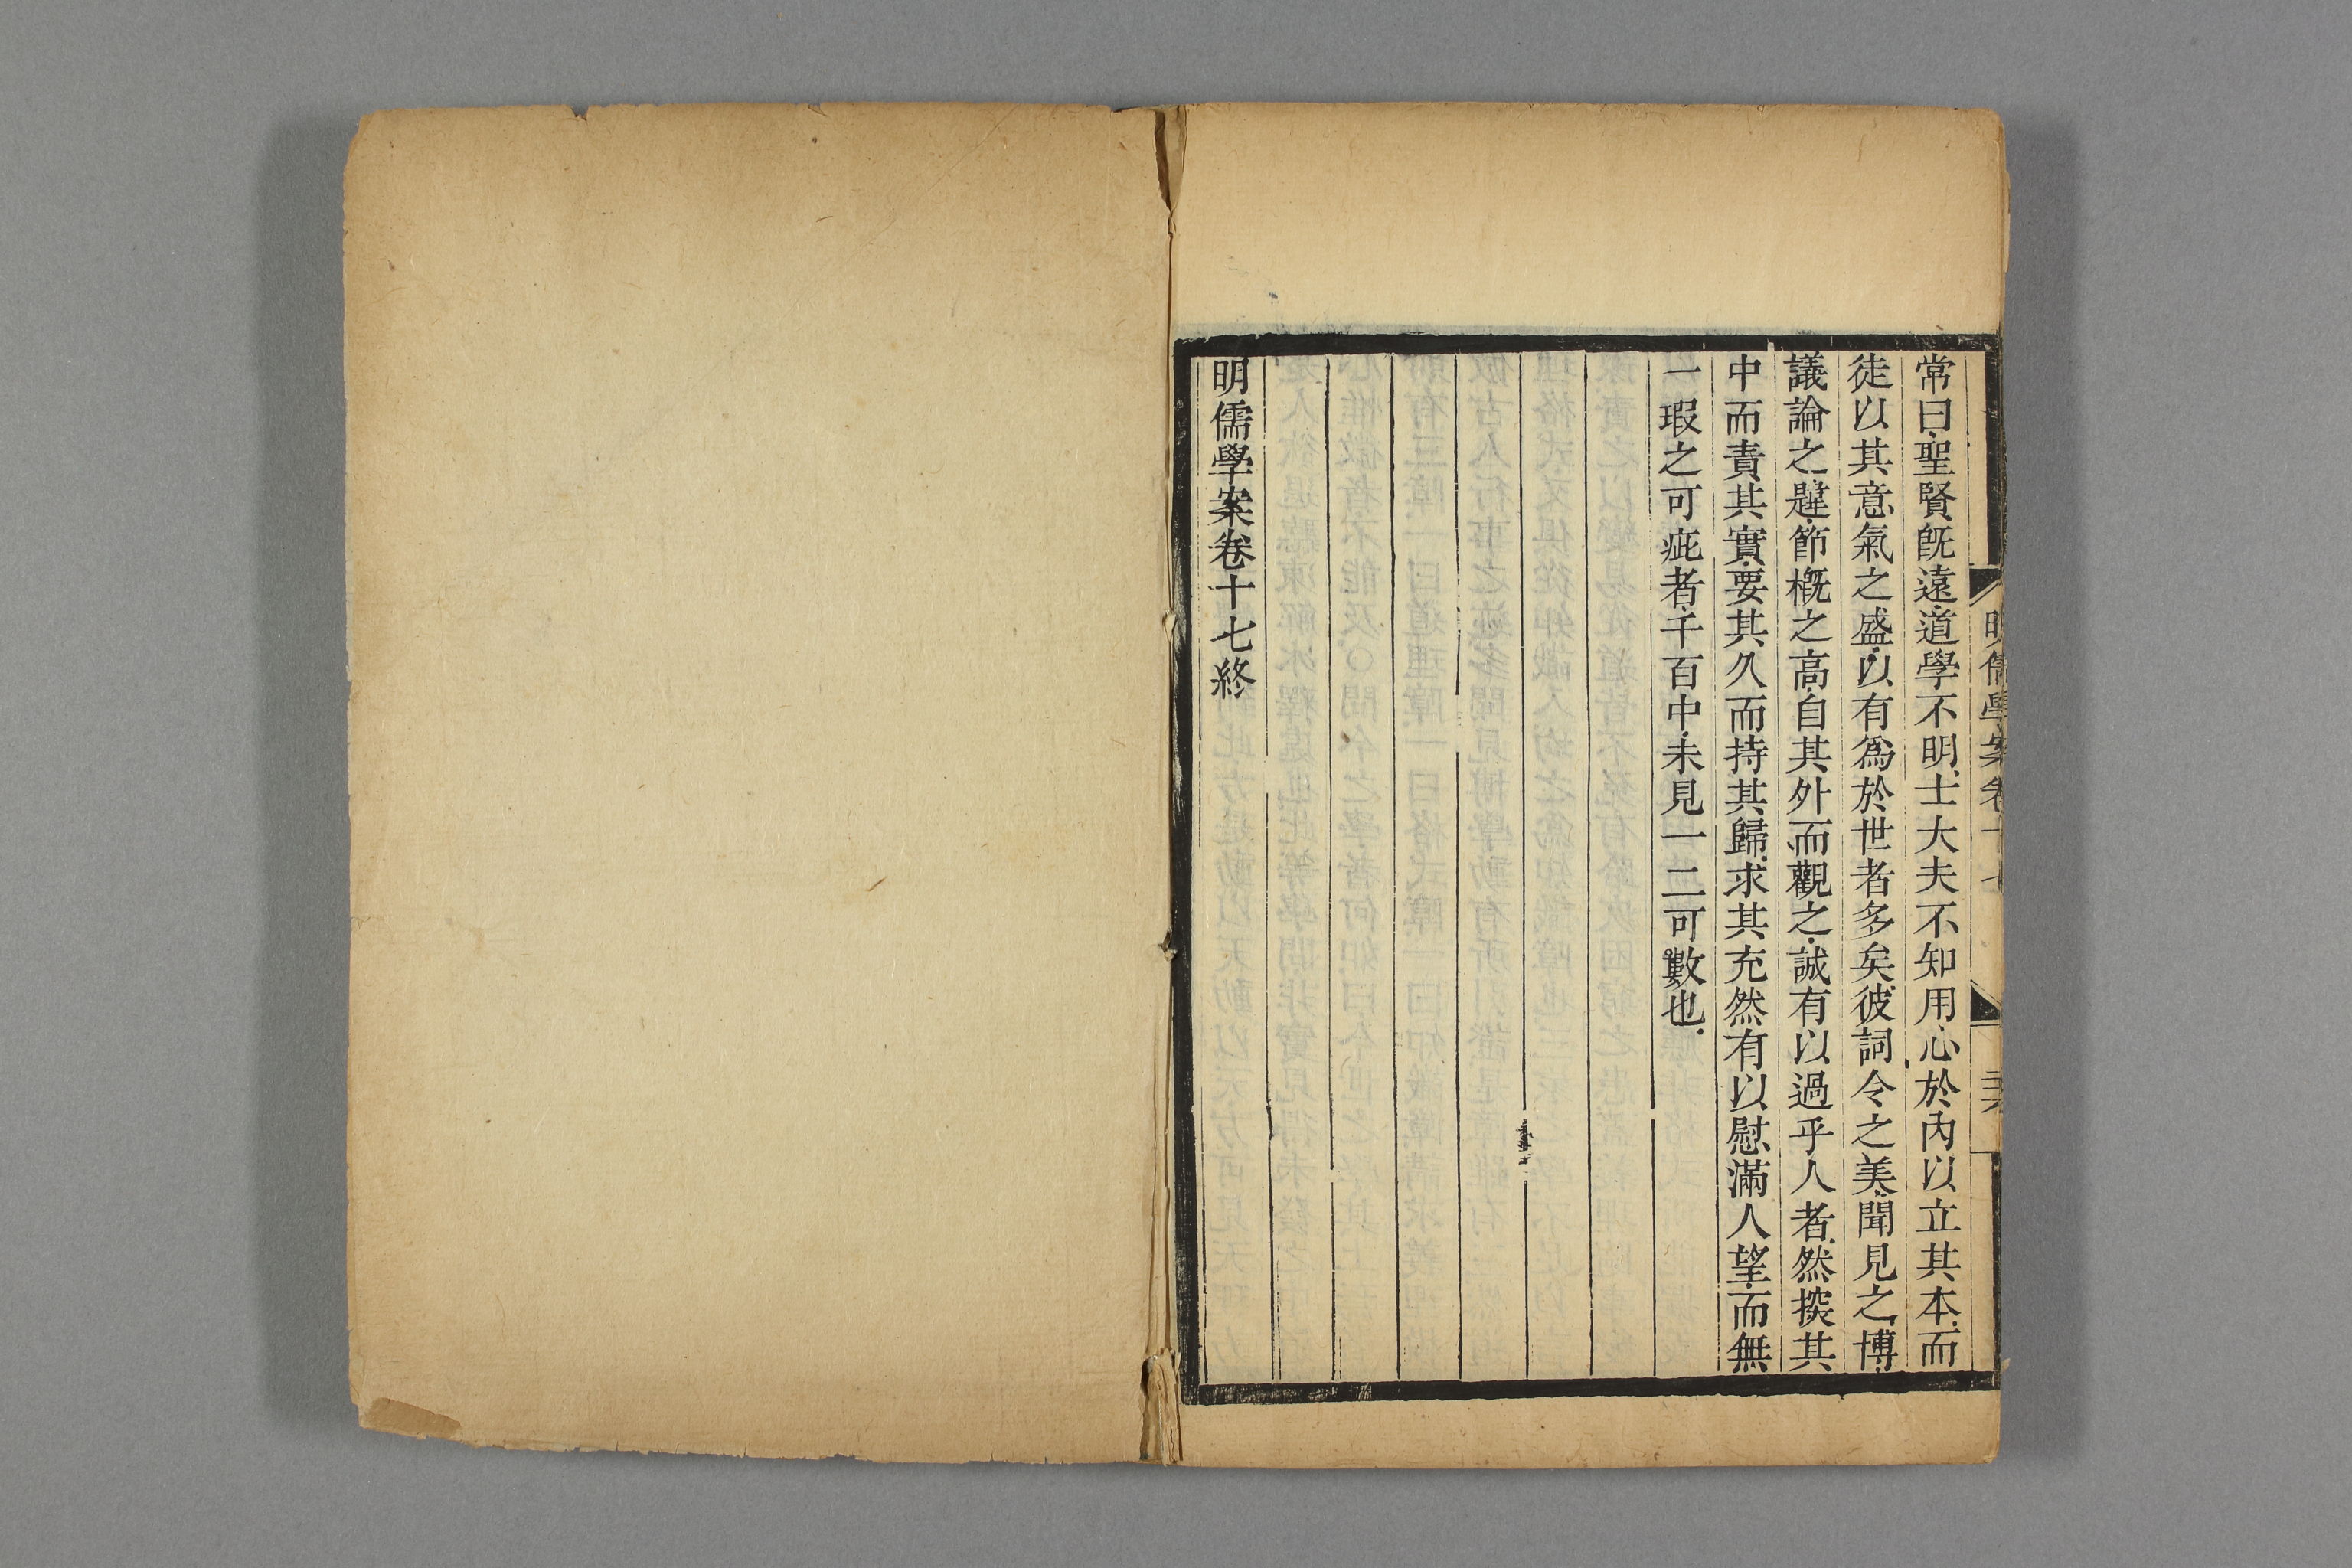 明儒學案卷十七
常曰聖賢旣遠道學不明士大夫不知用心於內以立其本而
徒以其意氣之盛以有爲於世者多矣彼詞令之美聞見之博
議論之韙節槪之高自其外而觀之誠有以過乎人者然探其
中而責其實要其久而持其歸求其充然有以慰滿人望而無
一瑕之可疵者千百中未見一二可數也
明儒學案卷十七終